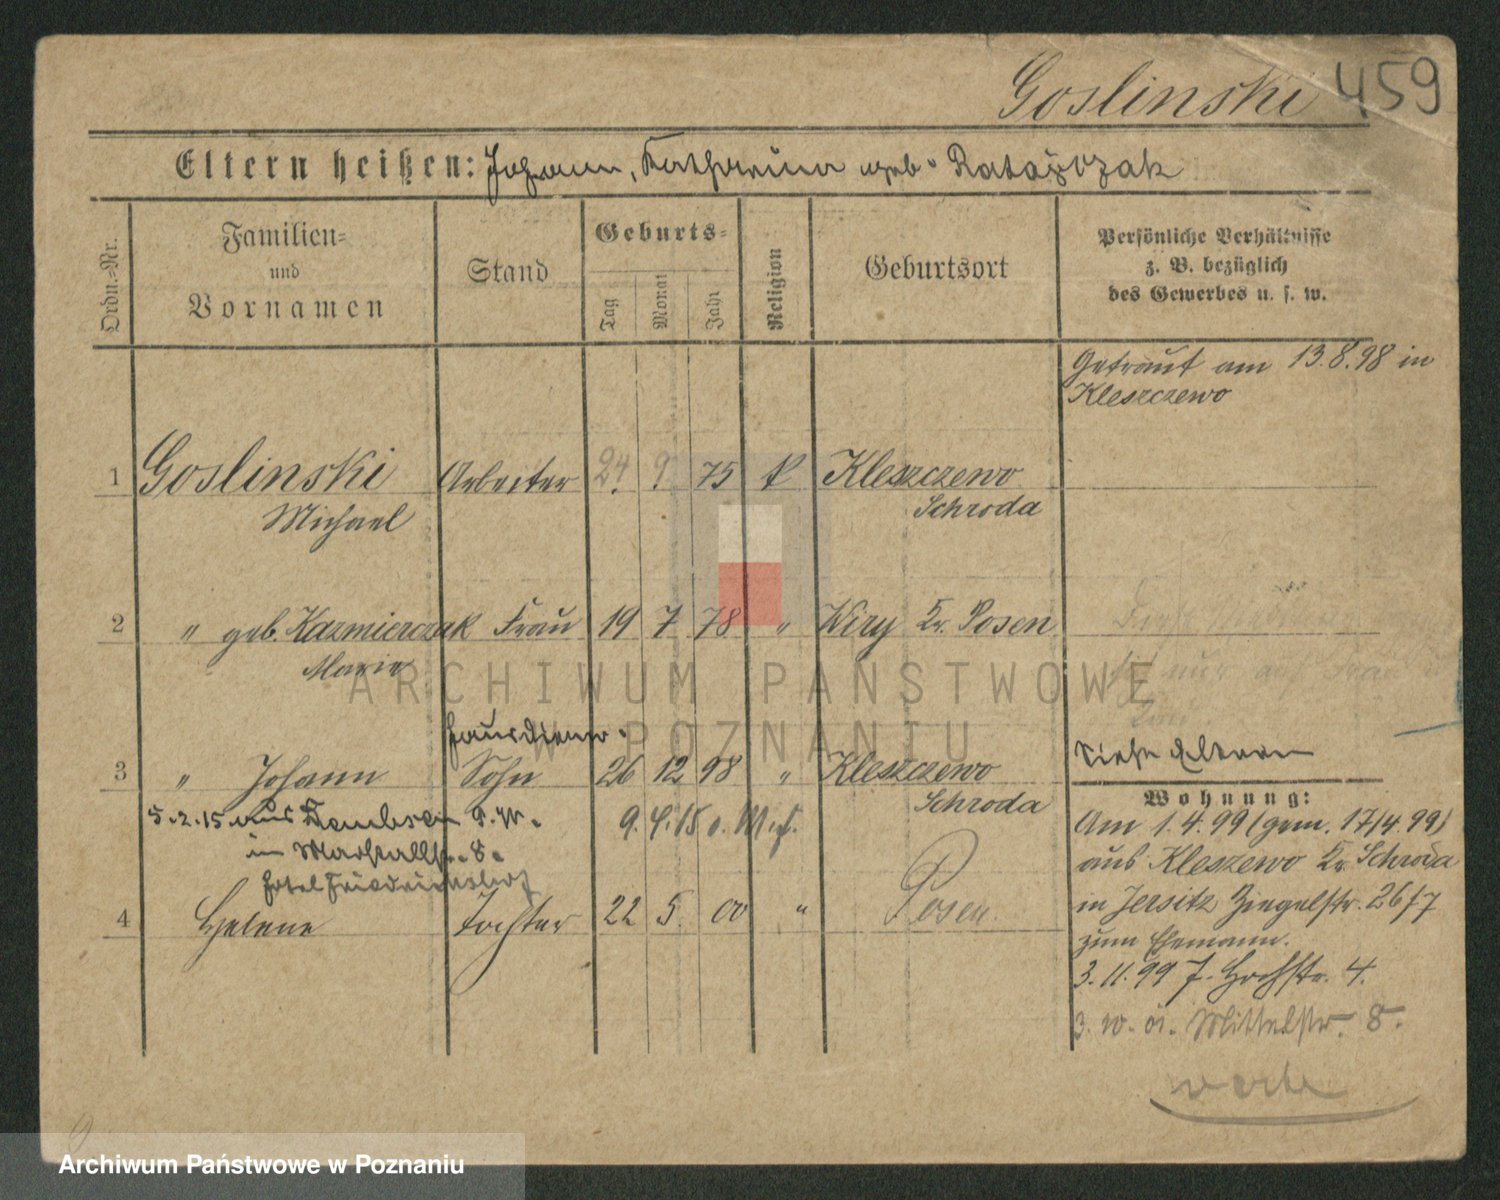 Goslinski 459
Eltern heißen: Johann, Katharina geb. Ratajczak
Ordn.-Nr.
Familien-
und
Vornamen
Stand
Geburts-
Tag
Monat
Jahr
Religion
Geburtsort
Persönliche Verhältnisse
z. B. bezüglich
des Gewerbes u. s. w.
Getraut am 13.8.98 in
Kleszczewo
1 Goslinski Arbeiter 24. 9. 75 k Kleszczewo
Michael Schroda
2 " geb. Kazmierczak Frau 19 7 78 " Wiry Kr. Posen
Maria
nur auf
ARCHIWUM PAŃSTWOWE
W POZNANIU
Hausdiener
3 " Johann Sohn 26 12 98 " Kleszczewo
Schroda
siehe Eltern
5.2.15 aus Dembsen
in Marstallstr. 8.
Hotel Friedrichshof
9.4.15
4 Helene Tochter 22 5. 00 " Posen.
Wohnung:
Am 1.4.99 (gem. 17/4.99)
aus Kleszewo Kr. Schroda
in Jersitz Ziegelstr. 26/7
zum Ehemann.
3.11.99 J. Hochstr. 4.
3.10.01. Mittelstr. 8.
Archiwum Państwowe w Poznaniu